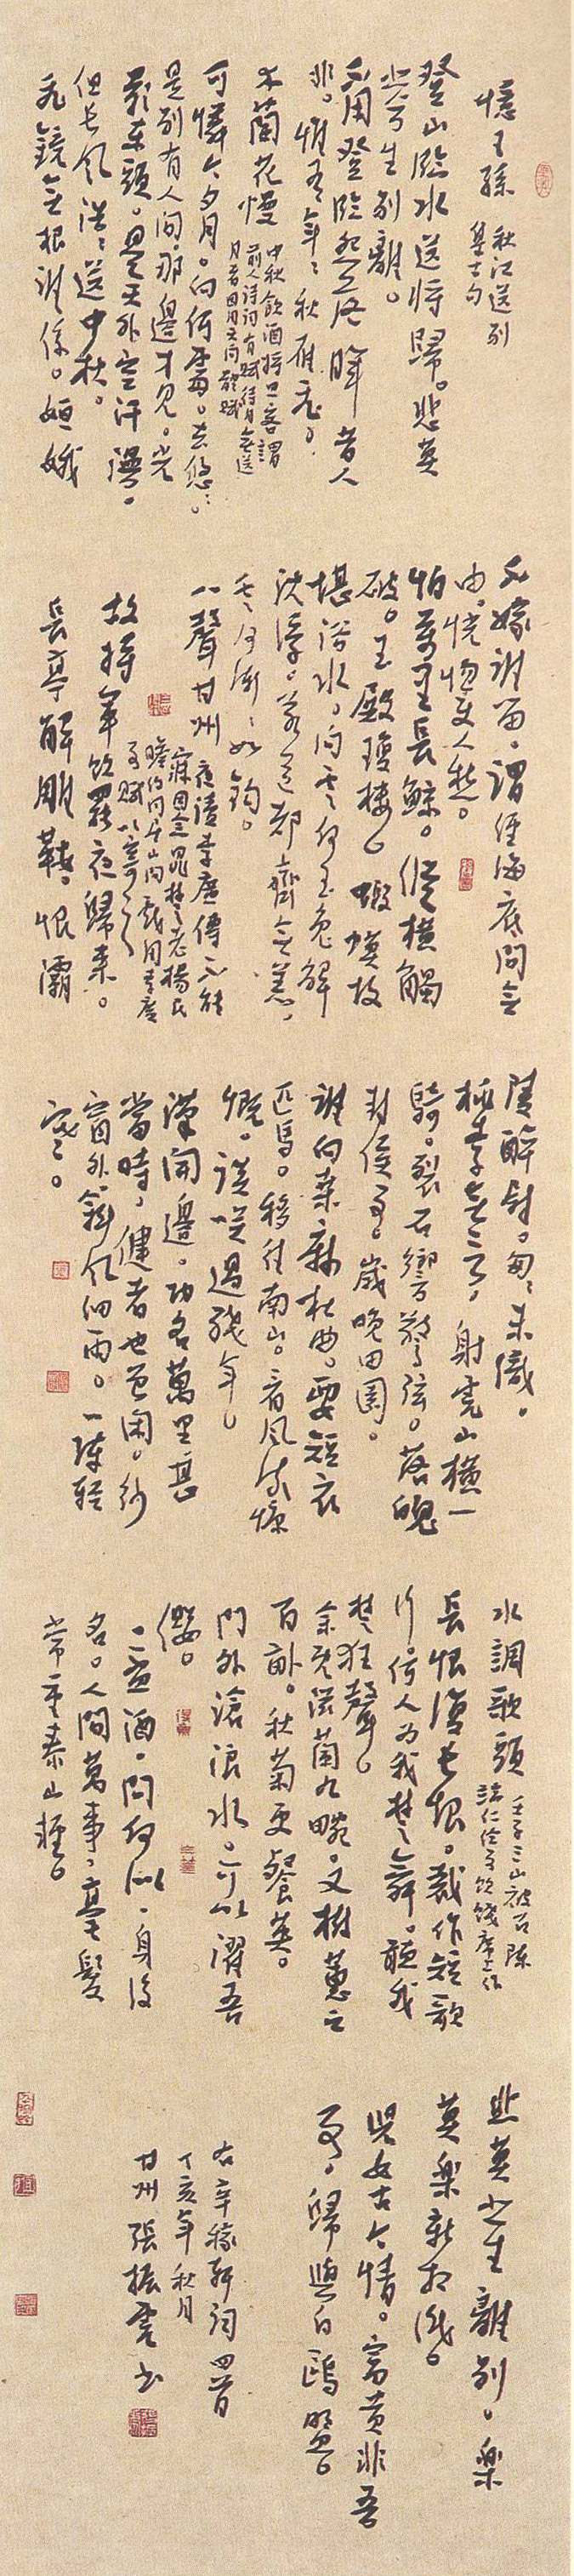 憶王孫 秋江送別
集古句
登山臨水送將歸。悲莫
悲兮生別離。
不用登臨怨落暉 昔人
非。惟有年年秋雁飛。
木蘭花慢 中秋飲酒將旦客謂
前人詩詞有賦待月無送
月者因用天問體賦
可憐今夕月。向何處。去悠悠。
是別有人間。那邊才見。光
影東頭。是天外空汗漫。
但長風浩浩送中秋。
飛鏡無根誰係。姮娥
不嫁誰留。謂經海底問無
由。恍惚使人愁。
怕萬里長鯨。縱橫觸
破。玉殿瓊樓。蝦蟆故
堪浴水。問云何玉兔解
沈浮。若道都齊無恙,
云何漸漸如鉤。
八聲甘州 夜讀李廣傳不能
寐因念晁楚老楊民
瞻約同居山間戲用李廣
事賦以寄之
故將軍飲罷夜歸來。
長亭解雕鞍。恨灞
陵醉尉。匆匆未識。
桃李無言,射虎山橫一
騎。裂石響驚弦。落魄
封侯事。歲晚田園。
誰向桑麻杜曲。要短衣
匹馬。移住南山。看風流慷
慨。談笑過殘年。
漢開邊。功名萬里甚
當時,健者也曾閑。紗
窗外斜風細雨。一陣輕
寒。
水調歌頭 壬子三山被召陳
端仁給事飲餞席上作
長恨復長恨。裁作短歌
行。何人為我楚舞。聽我
楚狂聲。
余既滋蘭九畹。又樹蕙之
百畝。秋菊更餐英。
門外滄浪水。可以濯吾
纓。
一盃酒。問何似,身後
名。人間萬事,毫髮
常重泰山輕。
悲莫悲生離別。樂
莫樂新相識。
兒女古今情。富貴非吾
事,歸與白鷗盟。
右辛稼軒詞四首
丁亥年秋月
甘州張振虎書